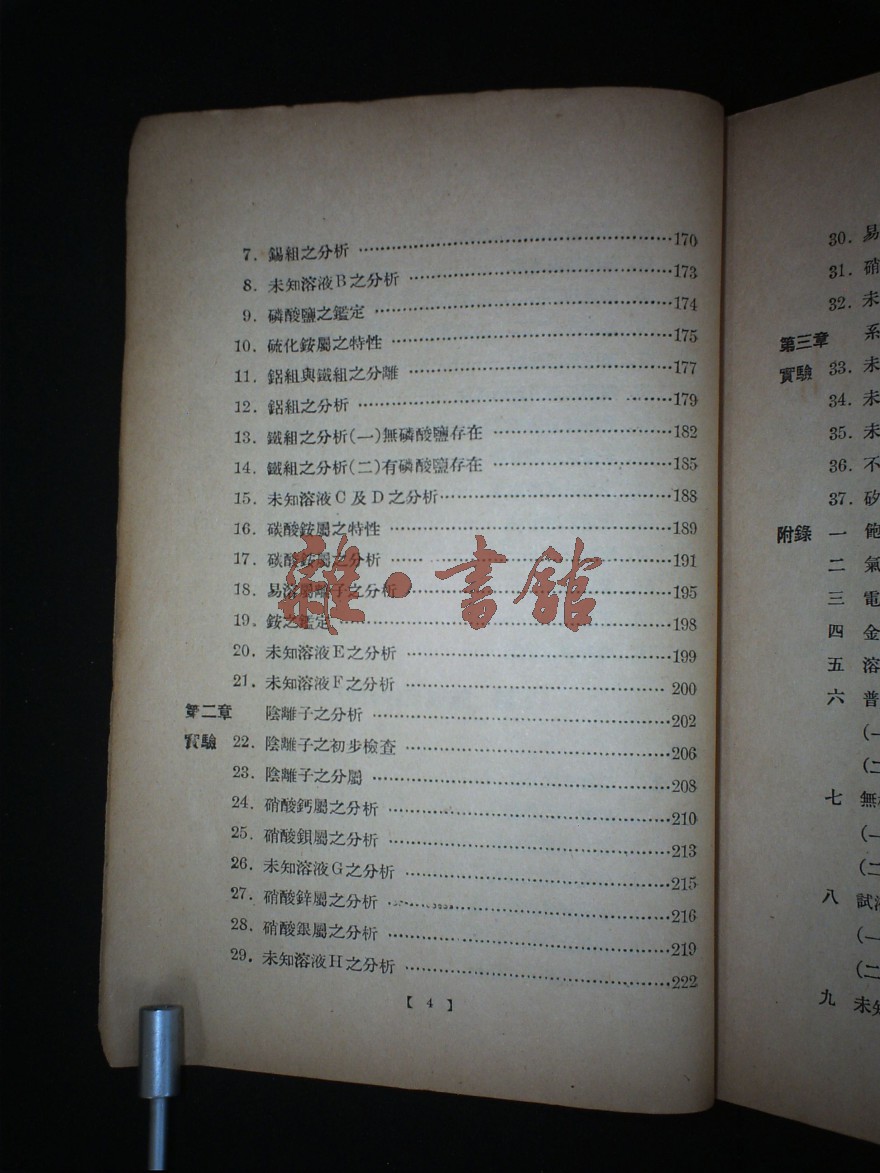 7. 錫組之分析 ……170
8. 未知溶液B之分析 ……173
9. 磷酸鹽之鑑定 ……174
10. 硫化銨屬之特性 ……175
11. 鋁組與鐵組之分離 ……177
12. 鋁組之分析 ……179
13. 鐵組之分析(一)無磷酸鹽存在 ……182
14. 鐵組之分析(二)有磷酸鹽存在 ……185
15. 未知溶液C及D之分析 ……188
16. 碳酸銨屬之特性 ……189
17. 碳酸銨屬之分析 ……191
18. 易溶屬離子之分析 ……195
19. 銨之鑑定 ……198
20. 未知溶液E之分析 ……199
21. 未知溶液F之分析 ……200
第二章 陰離子之分析 ……202
實驗 22. 陰離子之初步檢查 ……206
23. 陰離子之分屬 ……208
24. 硝酸鈣屬之分析 ……210
25. 硝酸鋇屬之分析 ……213
26. 未知溶液G之分析 ……215
27. 硝酸鋅屬之分析 ……216
28. 硝酸銀屬之分析 ……219
29. 未知溶液H之分析 ……222
【 4 】
雜·書館
30. 易
31. 硝
32. 未
第三章 系
實驗 33. 未
34. 未
35. 未
36. 不
37. 矽
附錄 一 飽
二 氣
三 電
四 金
五 溶
六 普
(一
(二
七 無
(一
(二
八 試
(一
(二
九 未知